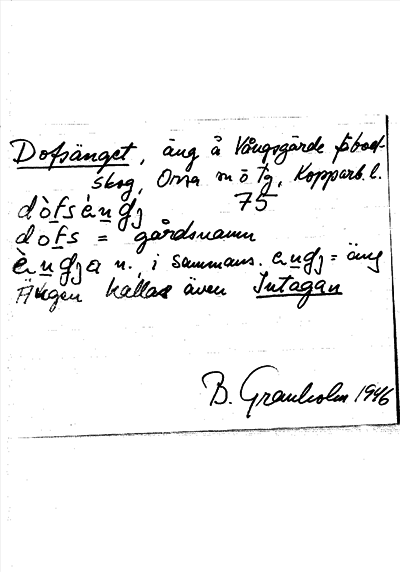 Dofsänget, äng å Vångsgärde fäbod-
skog, Orsa m ö Tg, Kopparb. l.
75
dòfsèngj
dofs = gårdsnamn
èngja n., i sammans. engj = äng
Ängen kallas även Intagan
B. Granholm 1946